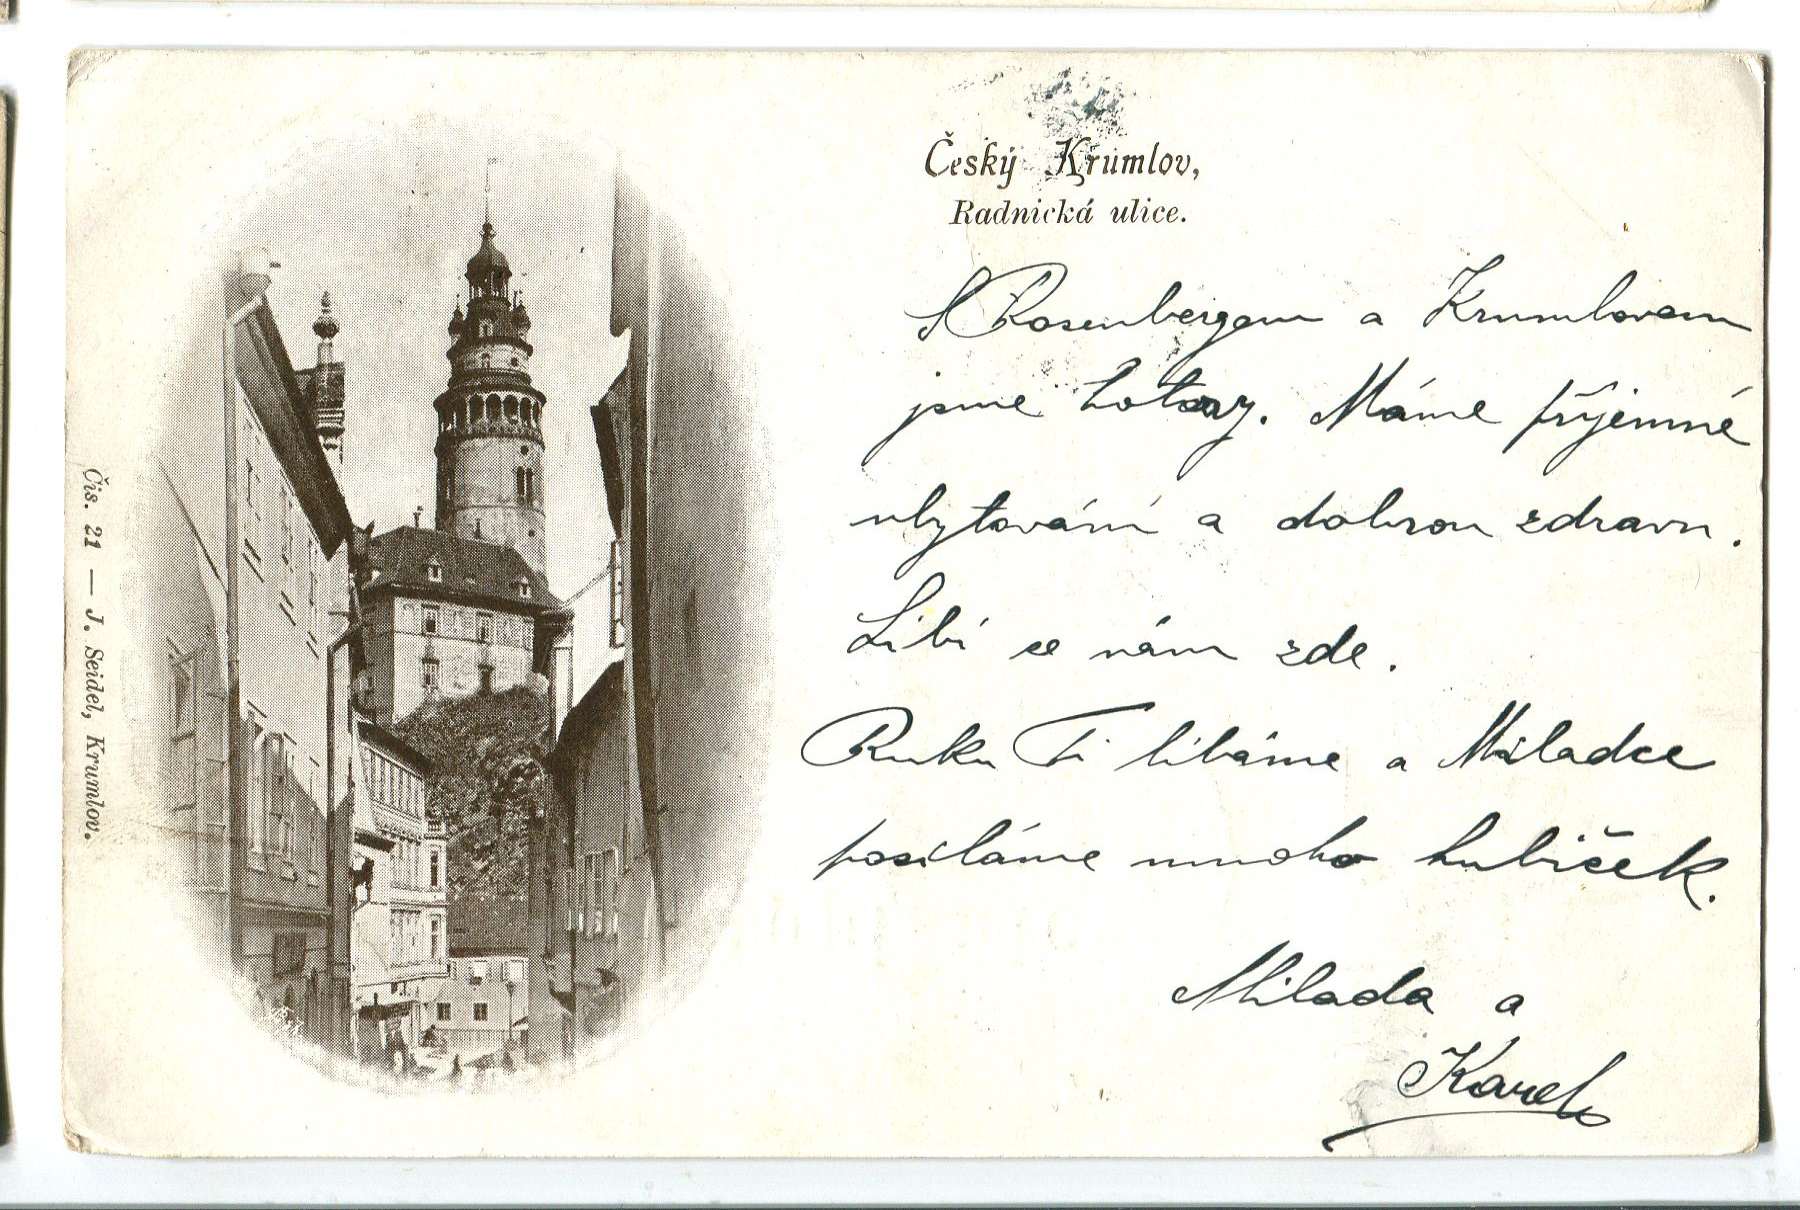 Český Krumlov,
Radnická ulice.
S Rosenbergem a Krumlovem
jsme hotovy. Máme příjemné
ubytování a dobrou zdravu.
Líbí se nám zde.
Ruku Ti líbáme a Miladce
posíláme mnoho hubiček.
Milada a
Karel
Čís. 21 — J. Seidel, Krumlov.